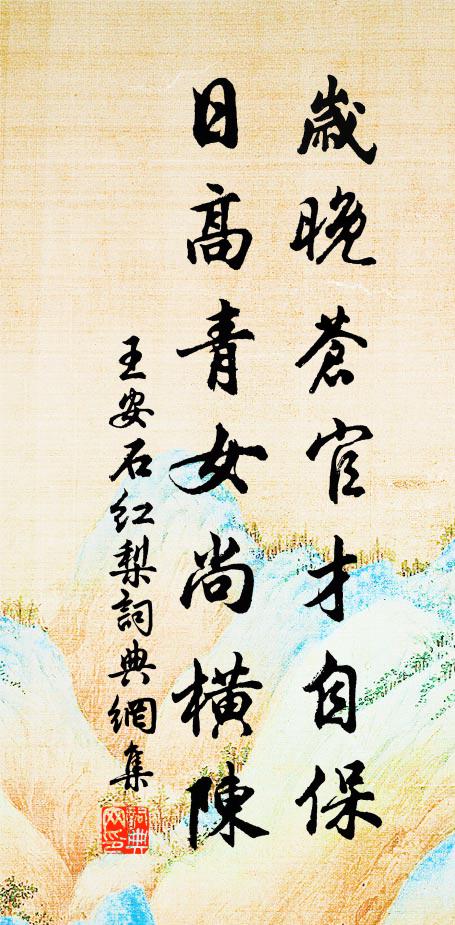 歲晚蒼官才自保
日高青女尚橫陳
王安石紅梨詞典網集
詞典